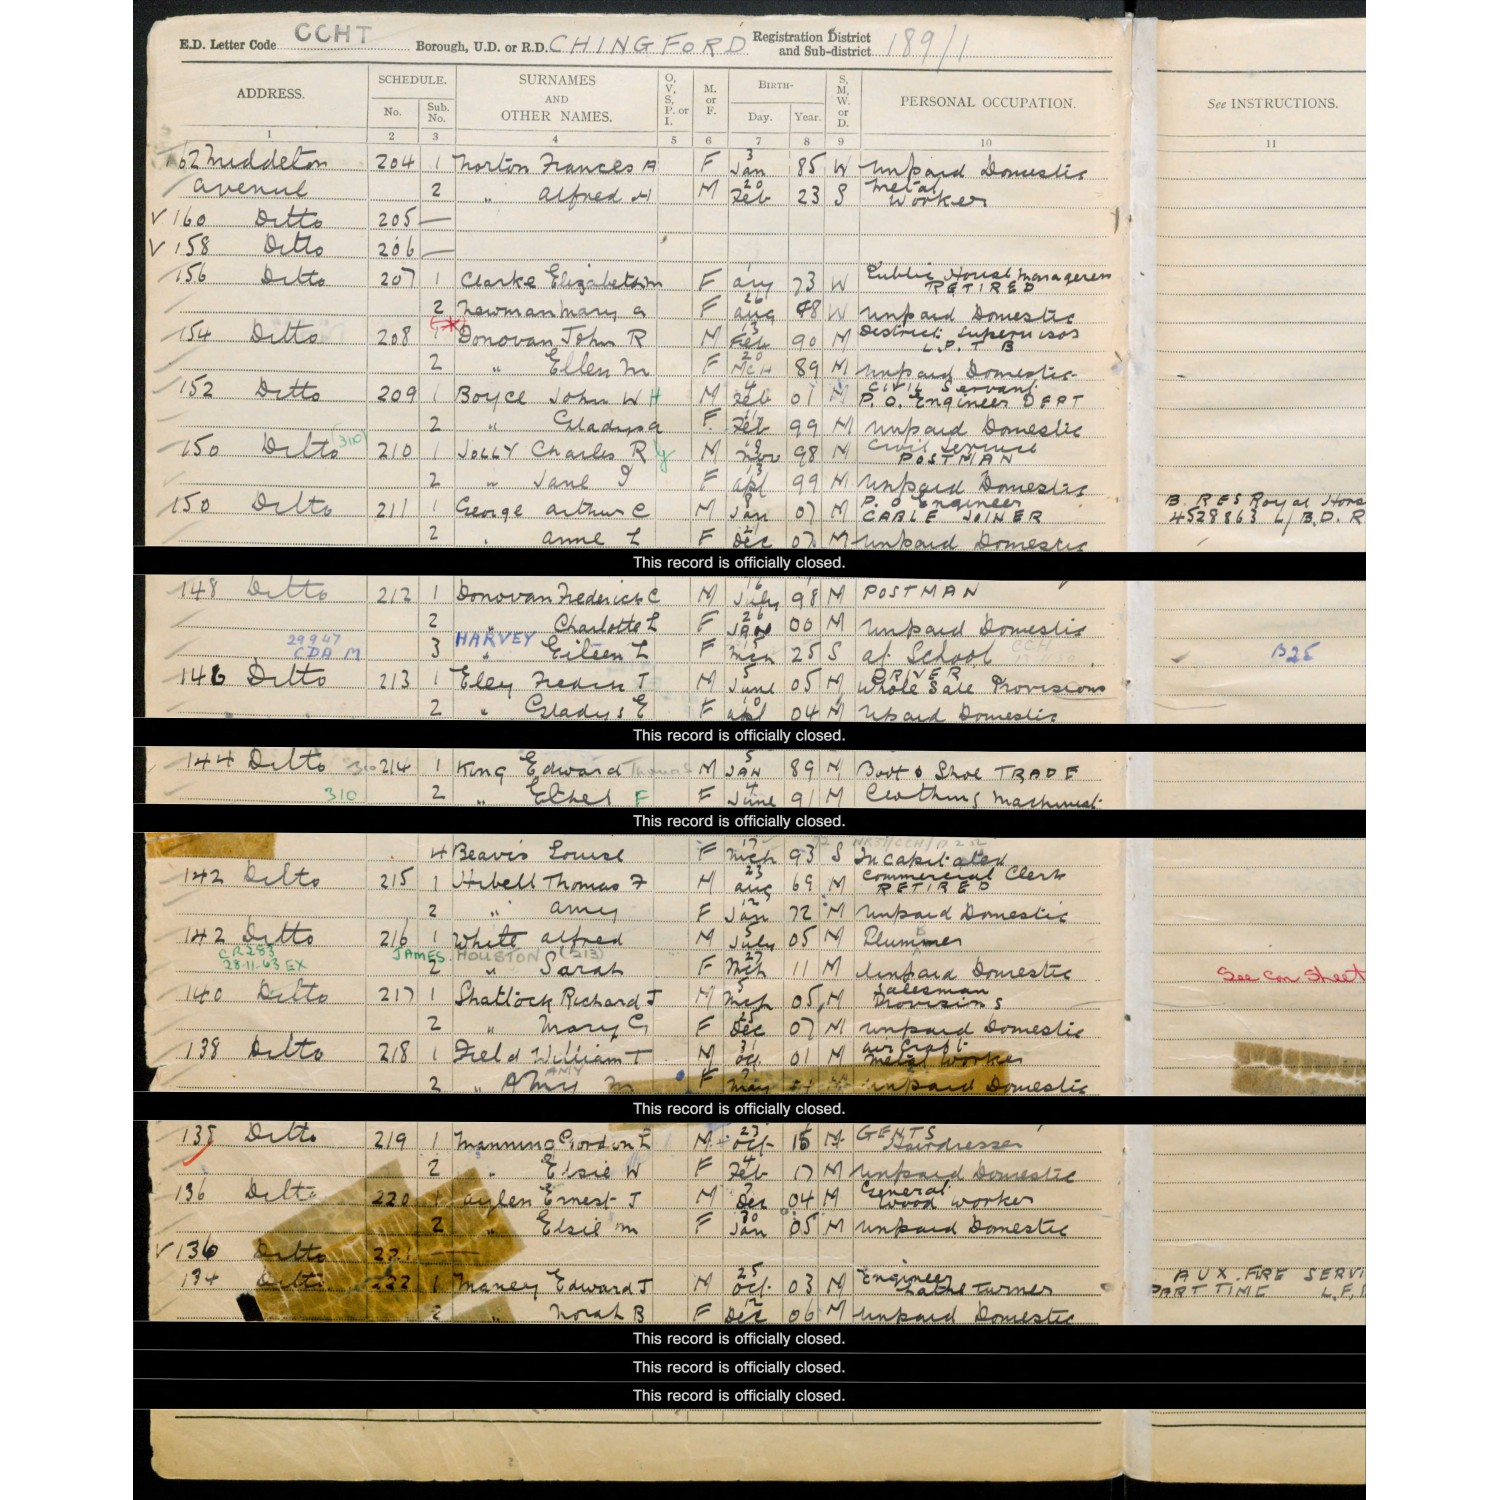 E.D. Letter Code CCHT Borough, U.D. or R.D. CHINGFORD Registration District and Sub-district 189/1
ADDRESS. SCHEDULE. No. Sub. No. SURNAMES AND OTHER NAMES. O, V, S, P. or I. M. or F. BIRTH- Day. Year. S. M, W. or D. PERSONAL OCCUPATION. See INSTRUCTIONS.
1 2 3 4 5 6 7 8 9 10 11
162 Middleton 204 1 Norton Frances A F 3 Jan 85 W Unpaid Domestic
avenue 2 " Alfred H M 20 Feb 23 S Metal Worker
✓ 160 Ditto 205 —
✓ 158 Ditto 206 —
156 Ditto 207 1 Clarke Elizabeth F 73 W Public House Manageress RETIRED
2 Newman Mary A F 26 Aug 48 W Unpaid Domestic
154 Ditto 208 1 Donovan John R M 13 Feb 90 M District Supervisor L.P.T B
2 " Ellen M F 20 Mch 89 M Unpaid Domestic
152 Ditto 209 1 Boyce John W H M 4 Feb 01 M Civil Servant P.O. Engineer DEPT
2 " Gladys A F Feb 99 M Unpaid Domestic
150 Ditto (310) 210 1 JOLLY Charles R M Nov 98 M Civil Service POSTMAN
2 " Jane F 13 Apl 99 M Unpaid Domestic
150 Ditto 211 1 George Arthur C M 8 Jan 07 M P.O Engineer CABLE JOINER B. RES Royal Hors 4528863 L/B.D.R
2 " Anne L F Dec 07 M Unpaid Domestic
This record is officially closed.
148 Ditto 212 1 Donovan Frederick C M 16 July 98 M POSTMAN
2 " Charlotte L F 26 JAN 00 M Unpaid Domestic
29947 CDA M 3 HARVEY " Eileen L F 15 25 S at School B25
146 Ditto 213 1 Eley T M 5 June 05 M DRIVER Whole Sale Provisions
2 " Gladys E F 10 Apl 04 M Upaid Domestic
This record is officially closed.
144 Ditto 214 1 King Edward Thomas M 5 JAN 89 M Boot & Shoe TRADE
310 2 " Ethel F F 4 June 91 M Clothing Machinist
This record is officially closed.
4 Beavis Louise F 17 Mch 93 S Incapacitated
142 Ditto 215 1 Hibell Thomas F M 23 Aug 69 M Commercial Clerk RETIRED
2 " Amy F 12 Jan 72 M Unpaid Domestic
142 Ditto 216 1 White Alfred M 5 July 05 M Plummer
CR283 28.11.63 EX JAMES HOUSTON (213) 2 " Sarah F 27 Mch 11 M Unpaid Domestic See Con Sheet
140 Ditto 217 1 Shattock Richard J M 5 Mch 05 M Salesman Provisions
2 " Mary G F 25 Dec 07 M Unpaid Domestic
138 Ditto 218 1 Field William T M 31 Oct 01 M Air Craft Metal Worker
2 " Amy AMY M F May 04 M Unpaid Domestic
This record is officially closed.
138 Ditto 219 1 Manning Gordon L M 27 Oct 15 M GENTS Hairdresser
2 " Elsie W F 4 Feb 17 M Unpaid Domestic
136 Ditto 220 1 Ernest J M 7 Dec 04 M General Wood Worker
2 " Elsie M F 30 Jan 05 M Unpaid Domestic
✓ 136 Ditto 221 —
134 Ditto 222 1 Maney Edward J M 25 Oct 03 M Engineer Lathe Turner AUX. FIRE SERVI PART TIME L.F.
2 " Norah B F 12 Dec 06 M Unpaid Domestic
This record is officially closed.
This record is officially closed.
This record is officially closed.